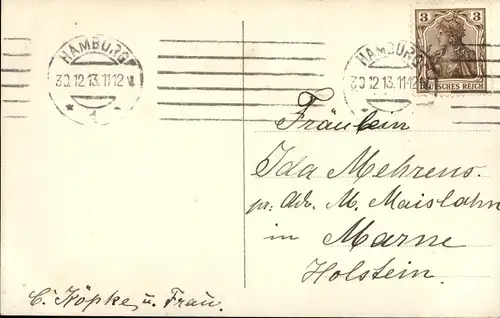 HAMBURG
30.12.13.11-12V
* 1 *
HAMBURG
30.12.13.11-12
3 3
DEUTSCHES REICH
Fräulein
Ida Mehrens.
pr. Adr. M. Maislahn
in Marne
Holstein.
C. Köpke u. Frau.